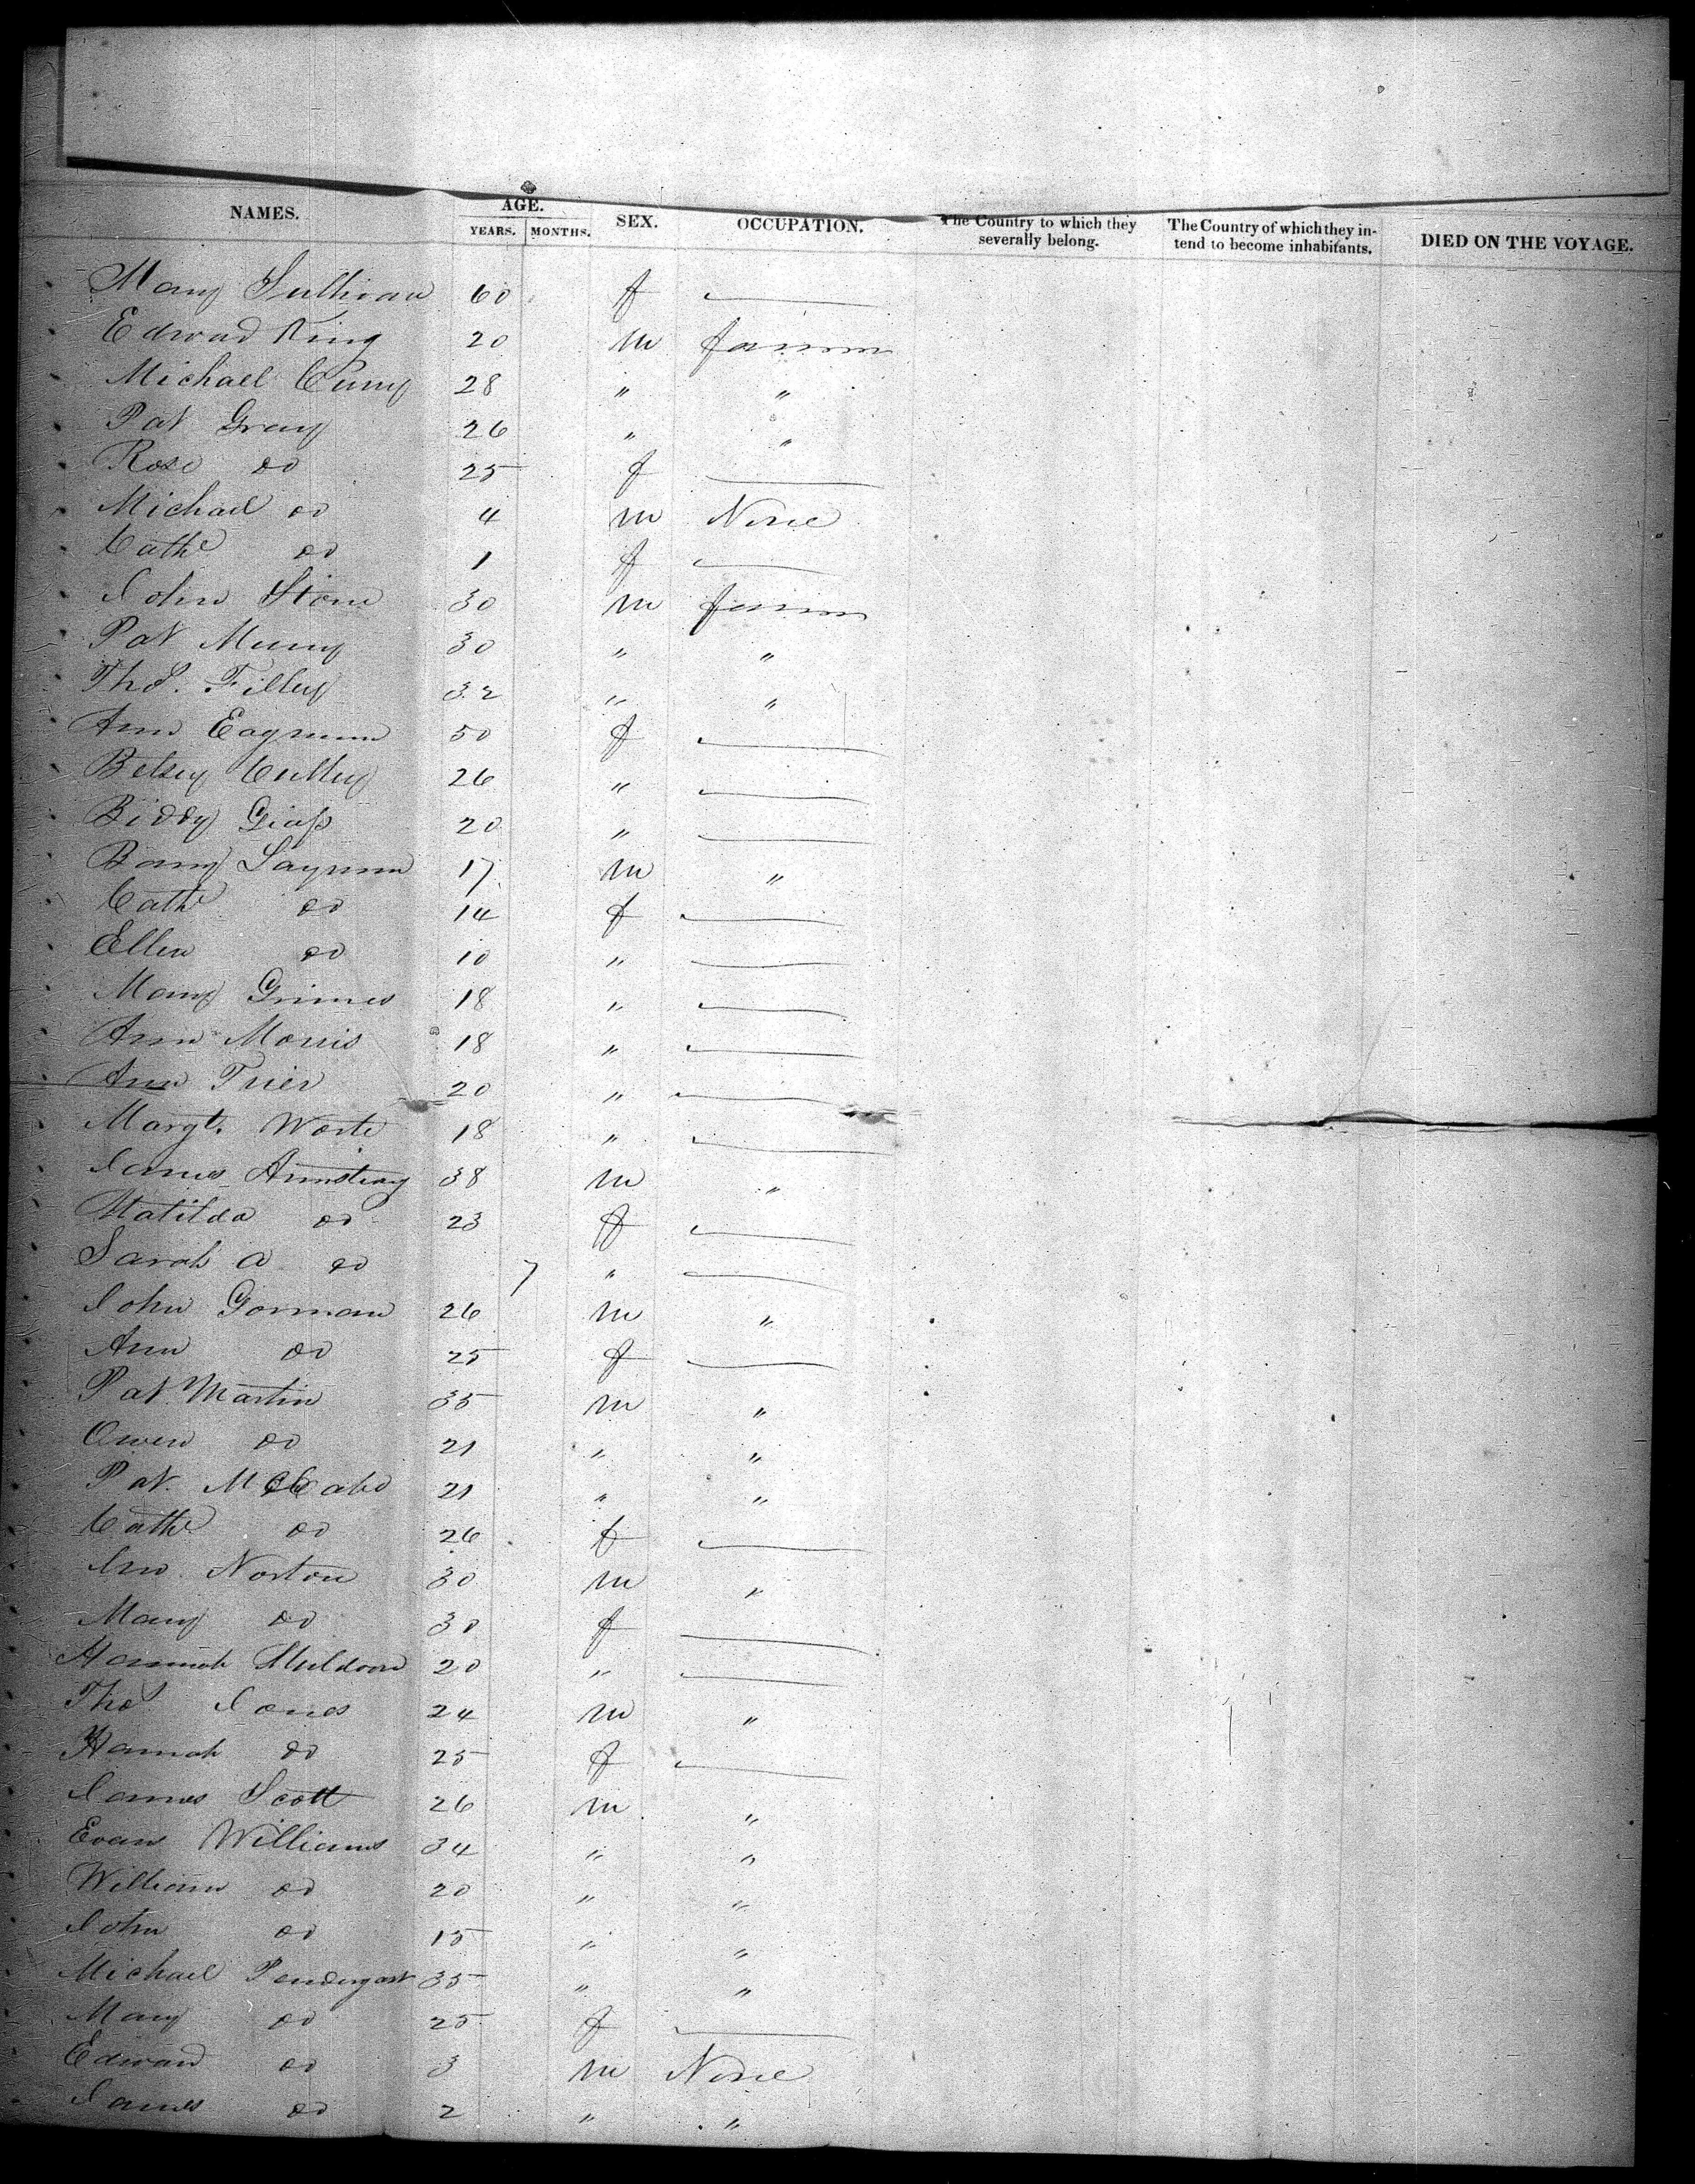 NAMES. AGE. YEARS. MONTHS. SEX. OCCUPATION. The Country to which they severally belong. The Country of which they intend to become inhabitants. DIED ON THE VOYAGE.
Mary Sullivan 60 f
Edward King 20 m farmer
Michael 28 " "
Pat Gray 26 " "
Rose do 25 f
Michael do 4 m None
Cathe do 1 f
John Stone 30 m farmer
Pat Murry 30 " "
Thos. Filley 32 " "
Ann 50 f
Betsey Culley 26 "
Biddy 20 "
Barny 17 m "
Cathe do 14 f
Ellen do 10 "
Mary Grimes 18 "
Ann Morris 18 "
Ann Trier 20 "
Margt. 18 "
James Armstrong 38 m "
Matilda do 23 f
Sarah A do 7 "
John Gorman 26 m "
Ann do 25 f
Pat Martin 35 m "
Owen do 21 " "
Pat. McCabe 21 " "
Cathe do 26 f
Jno. Norton 30 m "
Mary do 30 f
Hannah Muldoon 20 "
Thos Jones 24 m "
Hannah do 25 f
James Scott 26 m "
Evan Williams 34 " "
William do 20 " "
John do 15 " "
Michael Pendergast 35 " "
Mary do 25 f
Edward do 3 m None
James do 2 " "